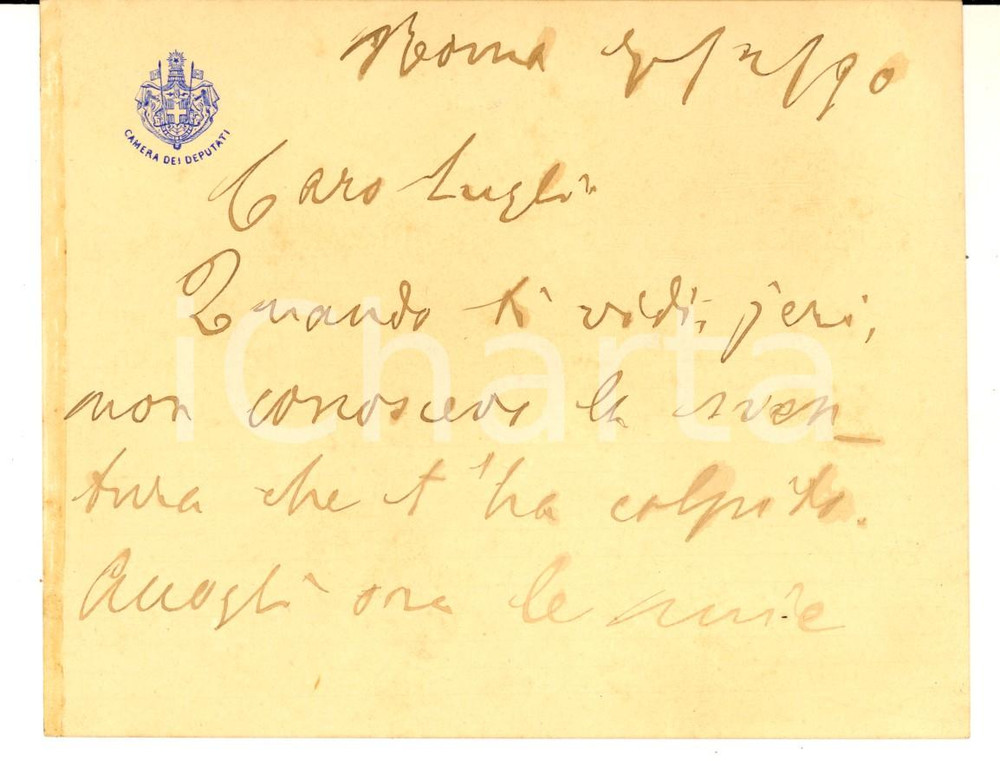 Roma
CAMERA DEI DEPUTATI
Caro Lugli
Quando ti vidi, jeri,
non conoscevo la sven_
tura che t'ha colpito.
Accogli ora le mie
iCharta